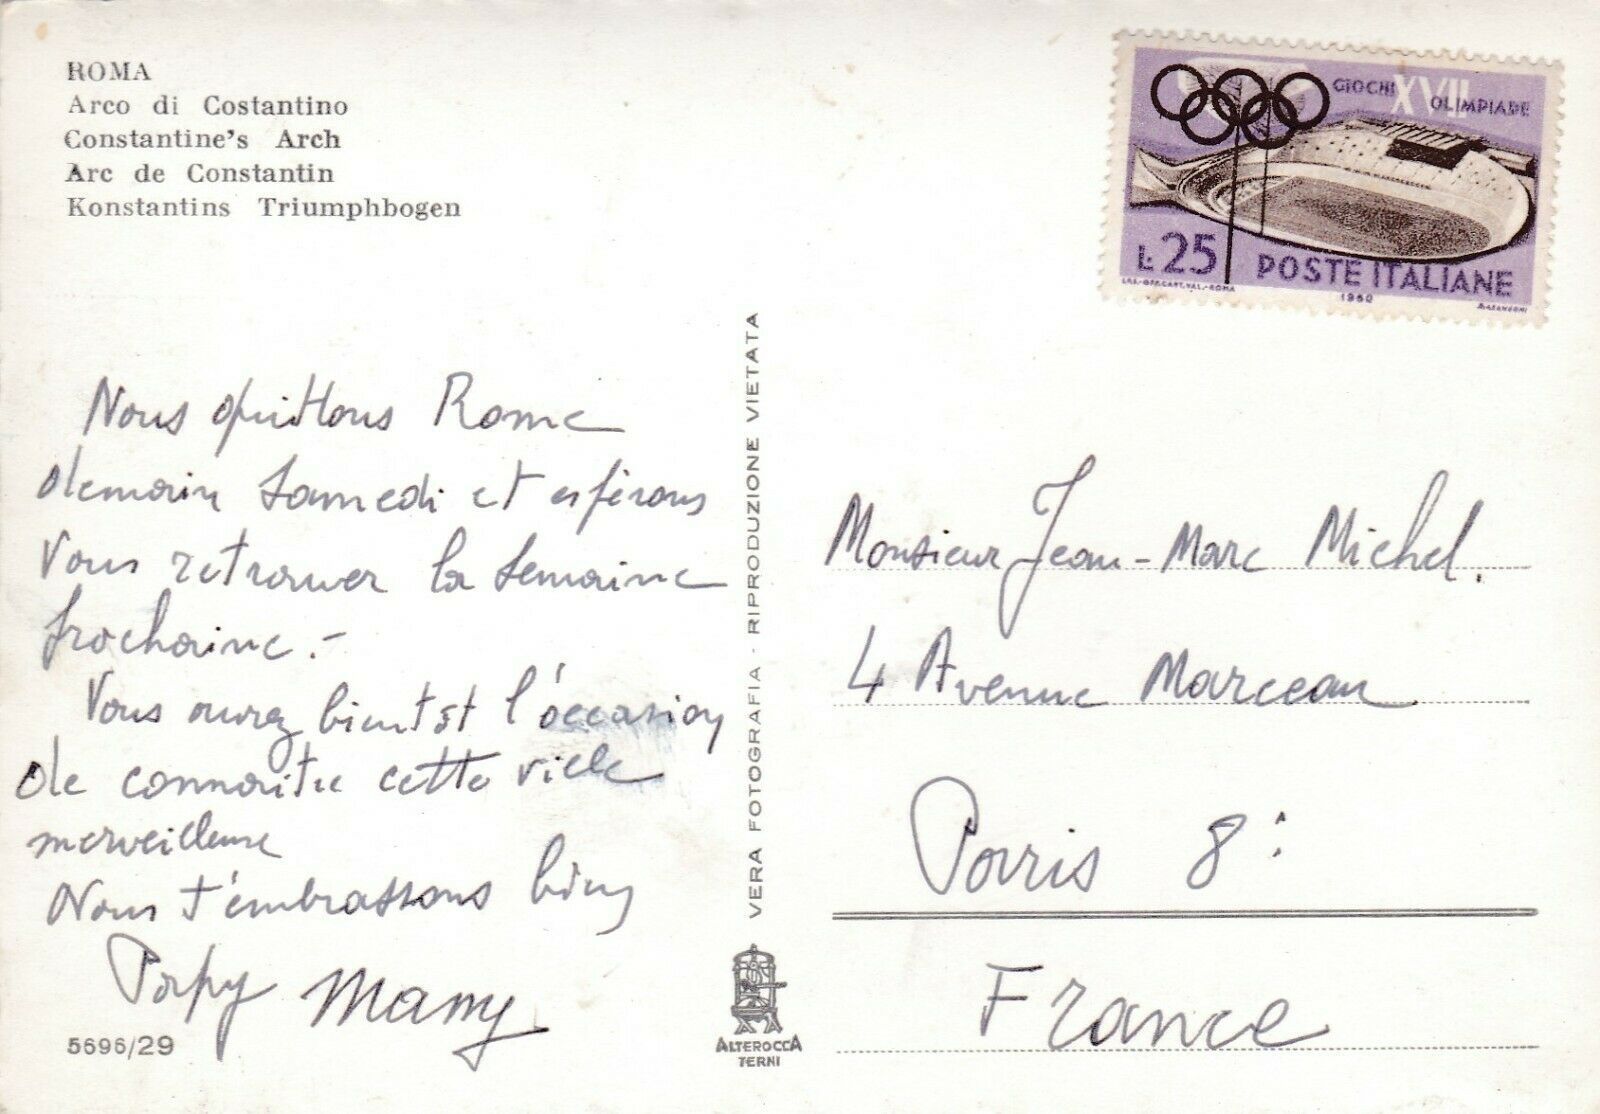 ROMA
Arco di Costantino
Constantine's Arch
Arc de Constantin
Konstantins Triumphbogen
GIOCHI XVII OLIMPIADE
L. 25 POSTE ITALIANE
1960
Nous quittons Rome
demain samedi et espérons
vous retrouver la semaine
prochaine. -
Vous aurez bientôt l'occasion
de connaitre cette ville
merveilleuse
Nous t'embrassons bien
Papy Mamy
5696/29
VERA FOTOGRAFIA - RIPRODUZIONE VIETATA
ALTEROCCA
TERNI
Monsieur Jean-Marc Michel.
4 Avenue Marceau
Paris 8e
France